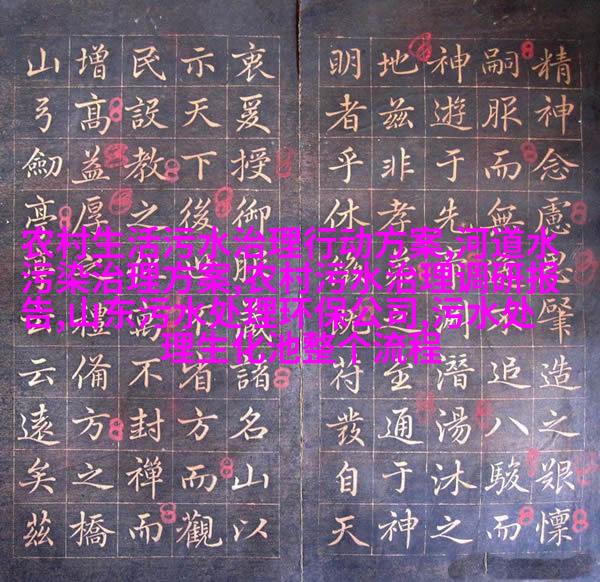 农村生活污水治理行动方案,河道水
污染治理方案,农村污水治理调研报
告,山东污水处理环保公司,污水处
理生化池整个流程
精神念慮肇造之艱懍
嗣服而無不追八駿而
神遊于先帝潛湯沐之
地茲非孝至通于神
明者乎休符發自天
衷爰授御藏諸名山以
示天下後不省方而觀
民設教之萬不封禪而
增高益厚禮備方之橋
山弓劒亭云遠矣茲